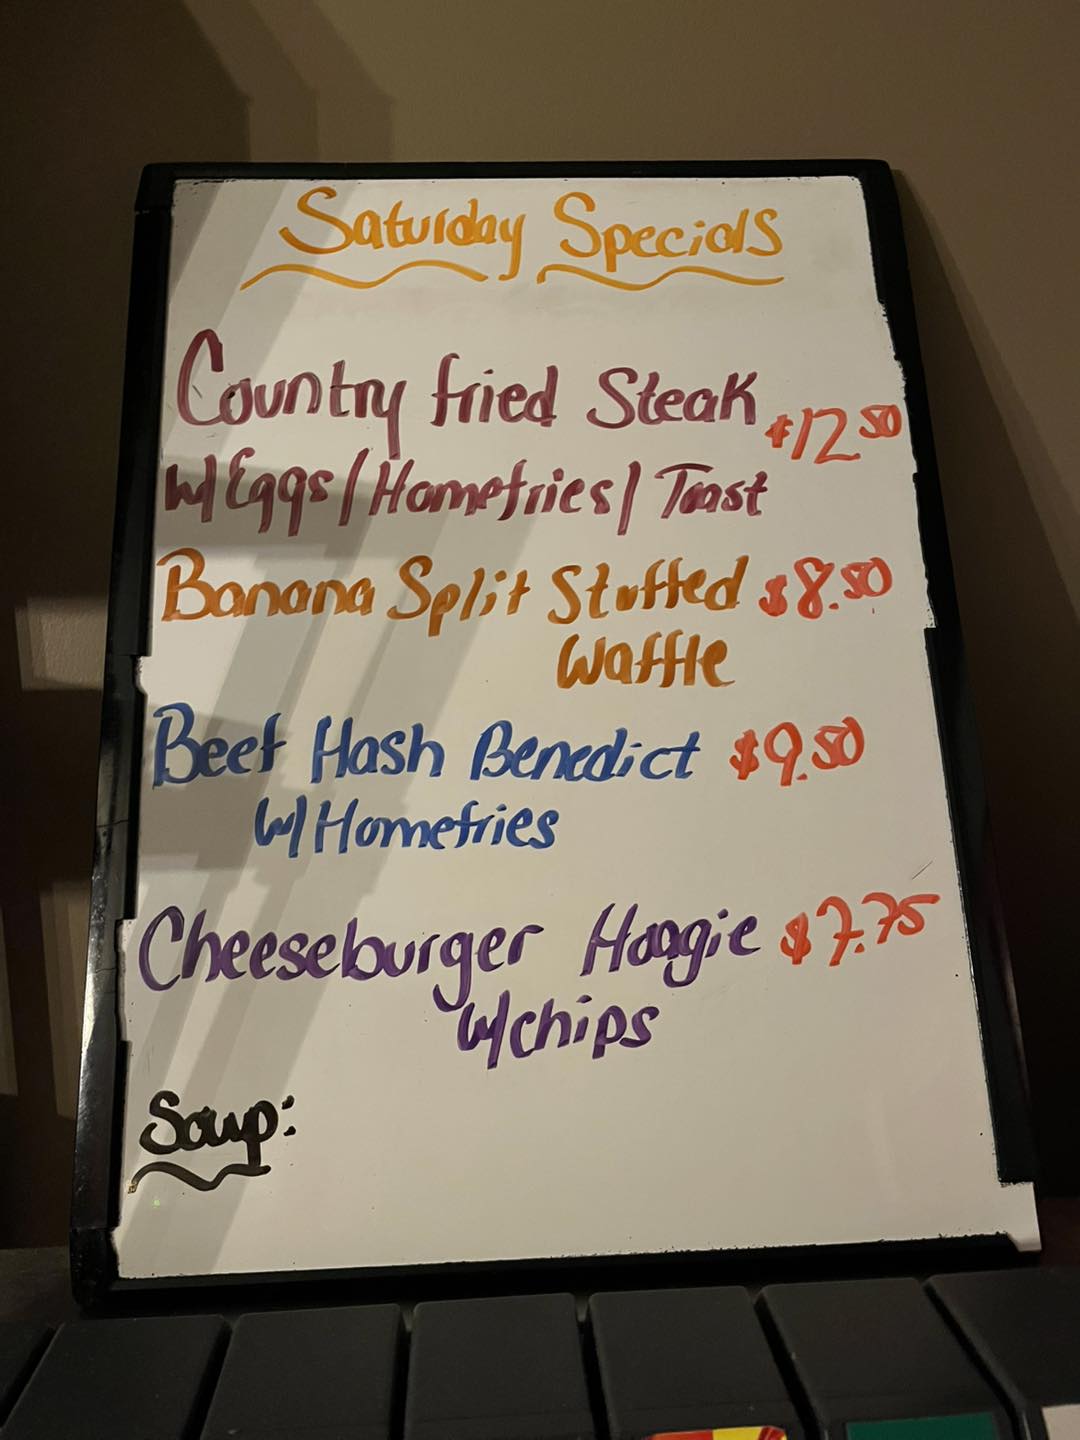 Saturday Specials
Country fried Steak $12.50
w/Eggs/Homefries/Toast
Banana Split Stuffed $8.50
Waffle
Beef Hash Benedict $9.50
w/Homefries
Cheeseburger Hoagie $7.75
w/chips
Soup: